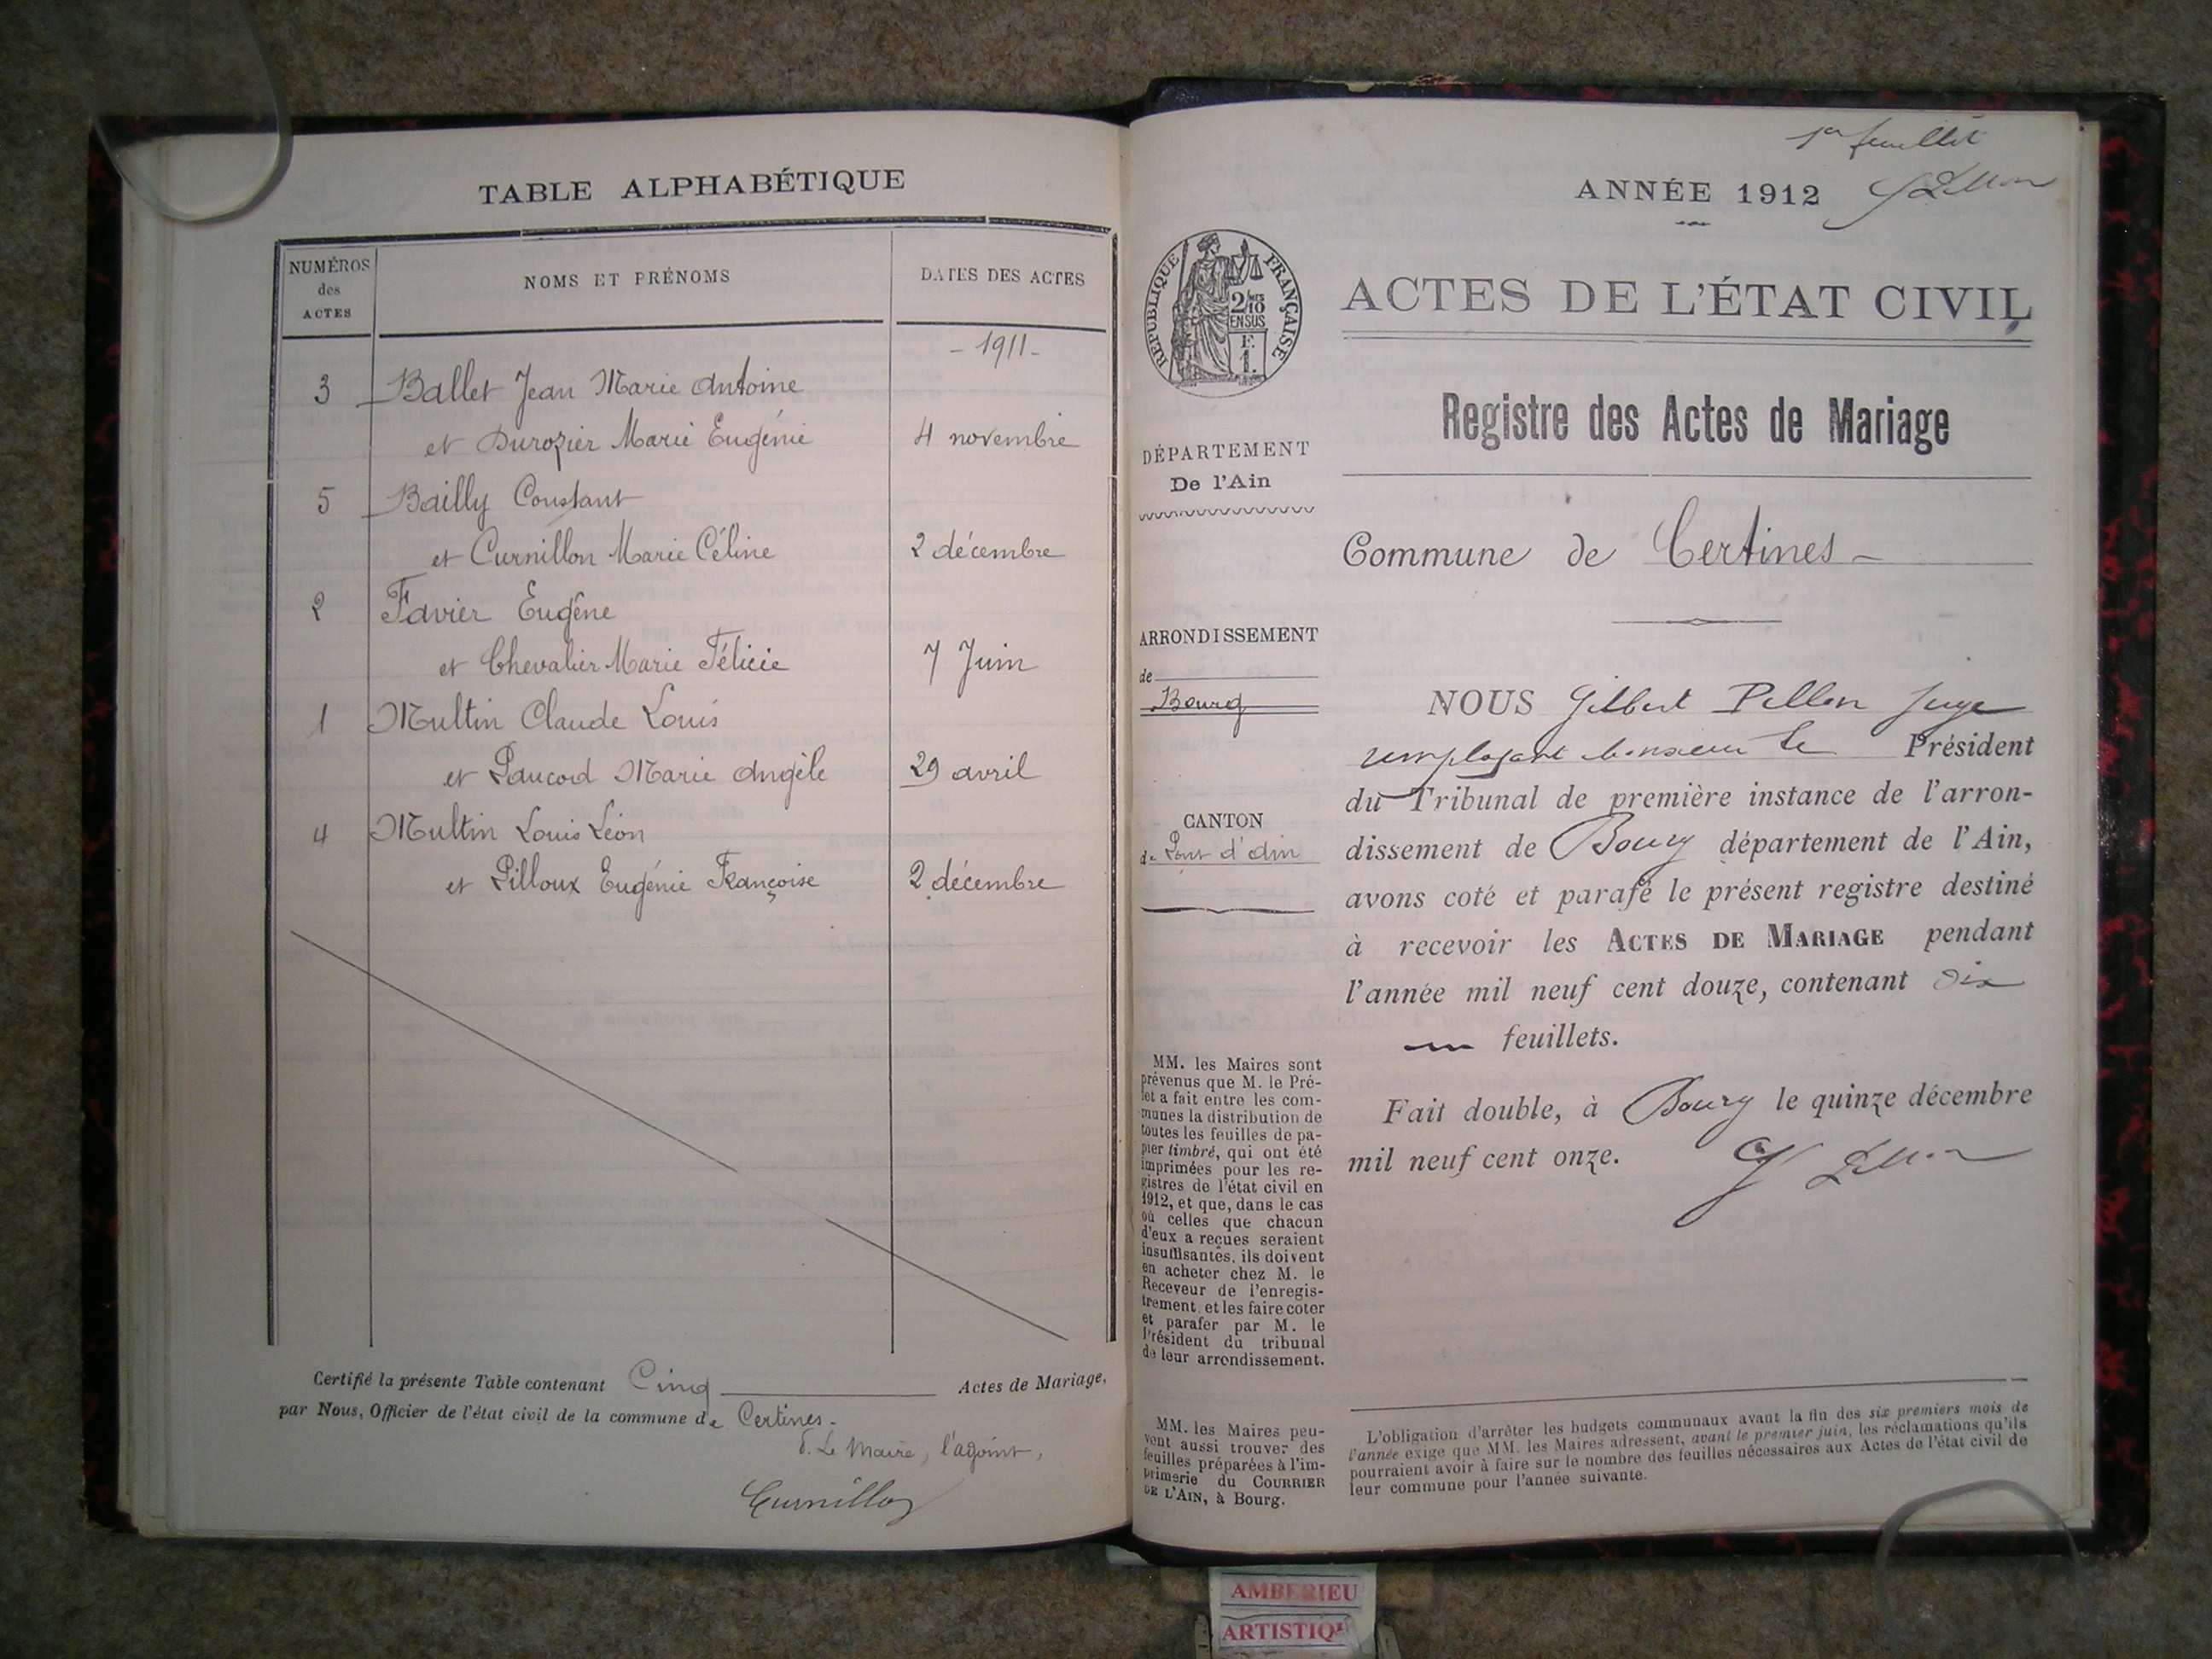 TABLE ALPHABÉTIQUE
NUMÉROS
des
ACTES
NOMS ET PRÉNOMS
DATES DES ACTES
- 1911 -
3 Ballet Jean Marie Antoine
et Durozier Marie Eugénie 4 novembre
5 Bailly Constant
et Curnillon Marie Céline 2 décembre
2 Favier Eugène
et Chevalier Marie Félicie 7 Juin
1 Multin Claude Louis
et Paucod Marie Angèle 29 avril
4 Multin Louis Léon
et Pilloux Eugénie Françoise 2 décembre
Certifié la présente Table contenant Cinq Actes de Mariage.
par Nous, Officier de l'état civil de la commune de Certines.
P. Le Maire, l'agoint,
Curnillon
1er feuillet
ANNÉE 1912
G Pellon
RÉPUBLIQUE FRANÇAISE
2/10
EN SUS
F.
1.
ACTES DE L'ÉTAT CIVIL
Registre des Actes de Mariage
DÉPARTEMENT
De l'Ain
Commune de Certines -
ARRONDISSEMENT
de
Bourg
CANTON
de Pont d'Ain
NOUS Gilbert Pellon Juge
remplaçant Monsieur le Président
du Tribunal de première instance de l'arron-
dissement de Bourg département de l'Ain,
avons coté et parafé le présent registre destiné
à recevoir les ACTES DE MARIAGE pendant
l'année mil neuf cent douze, contenant
feuillets.
Fait double, à Bourg le quinze décembre
mil neuf cent onze.
G Pellon
MM. les Maires sont
prévenus que M. le Pré-
fet a fait entre les com-
munes la distribution de
toutes les feuilles de pa-
pier timbré, qui ont été
imprimées pour les re-
gistres de l'état civil en
1912, et que, dans le cas
où celles que chacun
d'eux a reçues seraient
insuffisantes, ils doivent
en acheter chez M. le
Receveur de l'enregis-
trement, et les faire coter
et parafer par M. le
Président du tribunal
de leur arrondissement.
MM. les Maires peu-
vent aussi trouver des
feuilles préparées à l'im-
primerie du COURRIER
DE L'AIN, à Bourg.
L'obligation d'arrêter les budgets communaux avant la fin des six premiers mois de
l'année exige que MM. les Maires adressent, avant le premier juin, les réclamations qu'ils
pourraient avoir à faire sur le nombre des feuilles nécessaires aux Actes de l'état civil de
leur commune pour l'année suivante.
AMBERIEU
ARTISTIQ